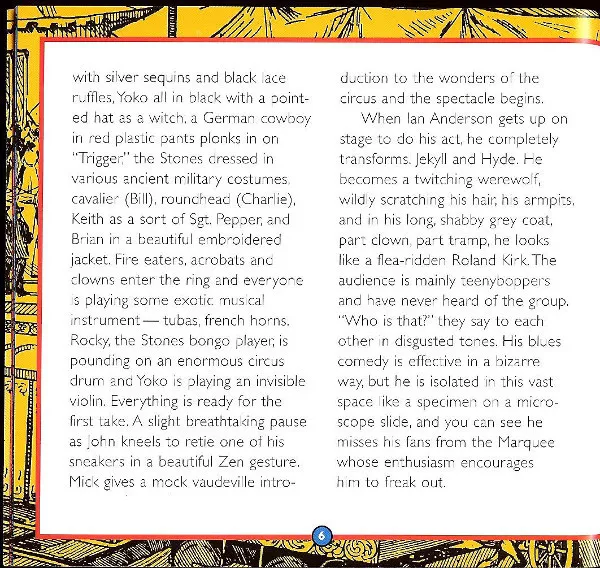 with silver sequins and black lace
ruffles, Yoko all in black with a point-
ed hat as a witch, a German cowboy
in red plastic pants plonks in on
"Trigger," the Stones dressed in
various ancient military costumes,
cavalier (Bill), roundhead (Charlie),
Keith as a sort of Sgt. Pepper, and
Brian in a beautiful embroidered
jacket. Fire eaters, acrobats and
clowns enter the ring and everyone
is playing some exotic musical
instrument — tubas, french horns.
Rocky, the Stones bongo player, is
pounding on an enormous circus
drum and Yoko is playing an invisible
violin. Everything is ready for the
first take. A slight breathtaking pause
as John kneels to retie one of his
sneakers in a beautiful Zen gesture.
Mick gives a mock vaudeville intro-
duction to the wonders of the
circus and the spectacle begins.
When Ian Anderson gets up on
stage to do his act, he completely
transforms. Jekyll and Hyde. He
becomes a twitching werewolf,
wildly scratching his hair, his armpits,
and in his long, shabby grey coat,
part clown, part tramp, he looks
like a flea-ridden Roland Kirk. The
audience is mainly teenyboppers
and have never heard of the group.
"Who is that?" they say to each
other in disgusted tones. His blues
comedy is effective in a bizarre
way, but he is isolated in this vast
space like a specimen on a micro-
scope slide, and you can see he
misses his fans from the Marquee
whose enthusiasm encourages
him to freak out.
6